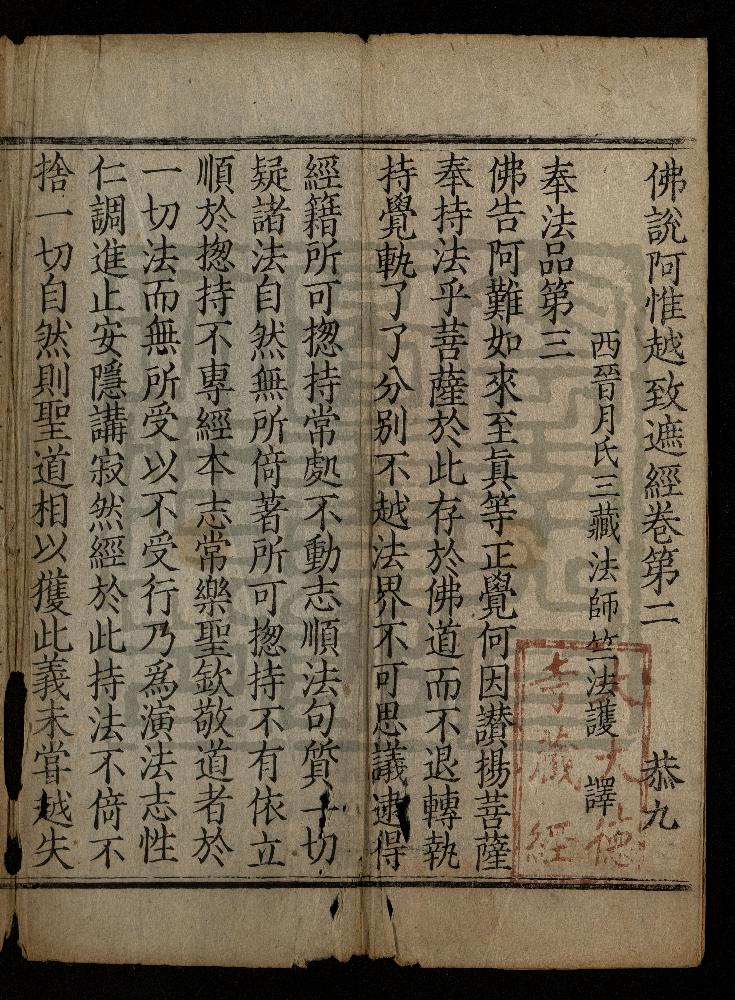 佛說阿惟越致遮經卷第二 恭九
西晉月氏三藏法師竺法護 譯
奉法品第三
佛告阿難如來至眞等正覺何因讃揚菩薩
奉持法乎菩薩於此存於佛道而不退轉執
持覺軌了了分別不越法界不可思議逮得
經籍所可揔持常處不動志順法句質一切
疑諸法自然無所倚著所可揔持不有依立
順於揔持不專經本志常樂聖欽敬道者於
一切法而無所受以不受行乃爲演法志性
仁調進止安隱講寂然經於此持法不倚不
捨一切自然則聖道相以獲此義未甞越失
大大德
寺藏經